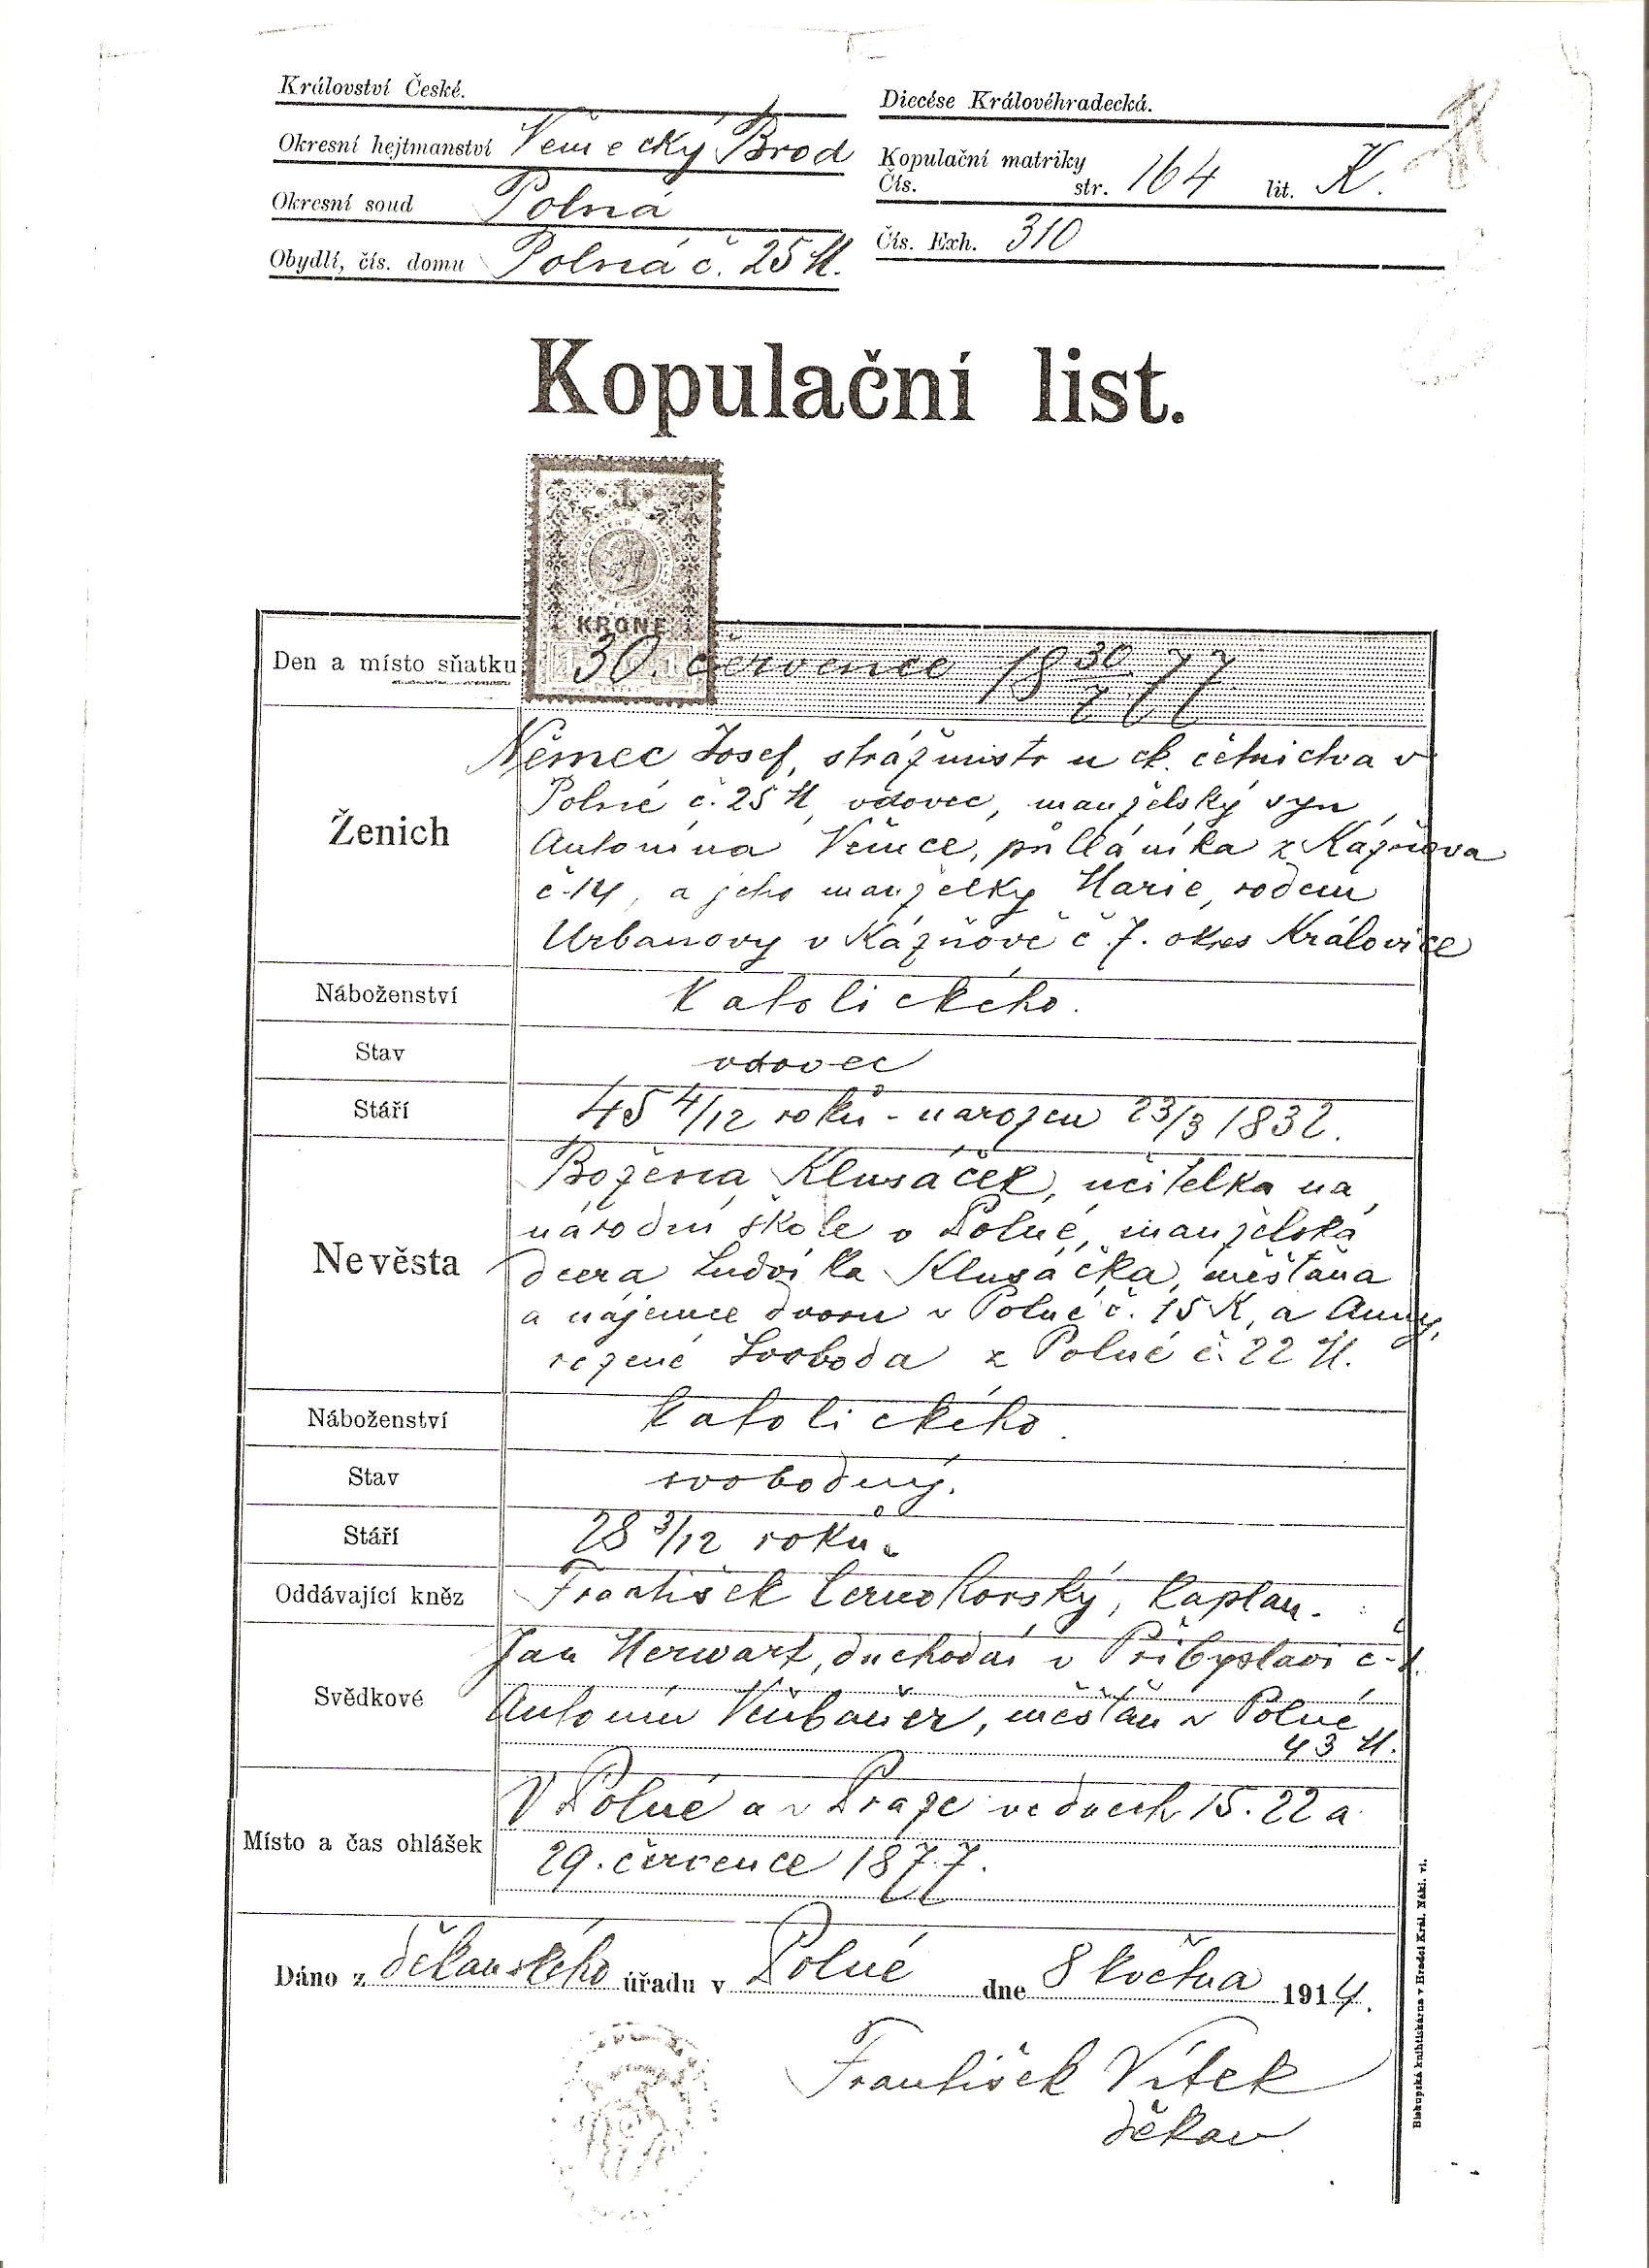 Království České.
Okresní hejtmanství Německý Brod
Okresní soud Polná
Obydlí, čís. domu Polná č. 25 H.
Diecése Královéhradecká.
Kopulační matriky
Čís. str. 164 lit. K.
Čís. Exh. 310
Kopulační list.
1
KRONE
Den a místo sňatku 30. července 18 30/7 77
Němec Josef, strážmistr u ck. četnictva v
Polné č. 25 H, vdovec, manželský syn
Ženich
Antonína Němce, půlláníka z Kázňova
č 14, a jeho manželky Marie, rodem
Urbanovy v Kázňově č 7. okres Kralovice
Náboženství Katolického.
Stav vdovec
Stáří 45 4/12 roků - narozen 23/3 1832.
Božena Klusáček, učitelka na
národní škole v Polné, manželská
Nevěsta
dcera Ludvíka Klusáčka, měšťana
a nájemce dvoru v Polné č. 15 K, a Anny,
rozené Svoboda z Polné č. 22 H.
Náboženství Katolického.
Stav svobodný.
Stáří 28 3/12 roků.
Oddávající kněz František Černohorský, kaplan.
Jan Herwart, důchodní v Přibyslavi č.
Svědkové
Antonín, měšťan v Polné
43 H.
V Polné a v Praze ve dnech 15. 22 a
Místo a čas ohlášek
29. července 1877.
Dáno z děkanského úřadu v Polné dne 8 května 1914.
František Vítek
děkan
Biskupská knihtiskárna v Hradci Král. Nákl. vl.